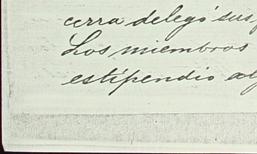 cerra delegó sus
Los miembros
estipendio alg